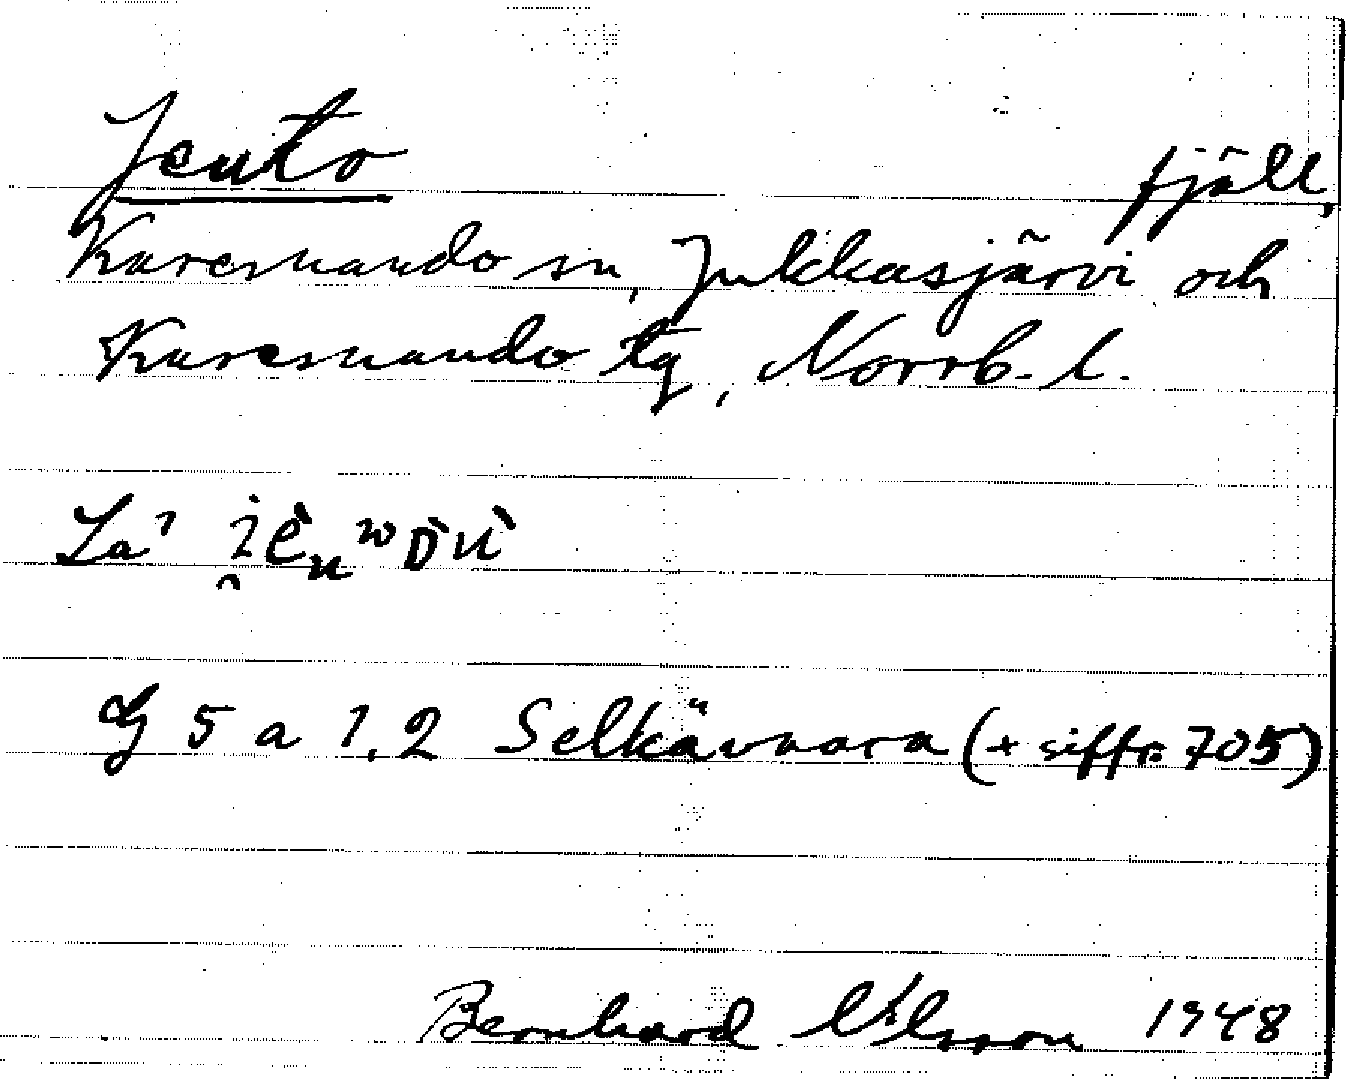 Jeuto fjäll,
Karesuando sn, Jukkasjärvi och
Karesuando tg, Norrb. l.
La'
5 a 1,2 Selkävaara (+ siffr. 705)
Bernhard Nilsson 1948